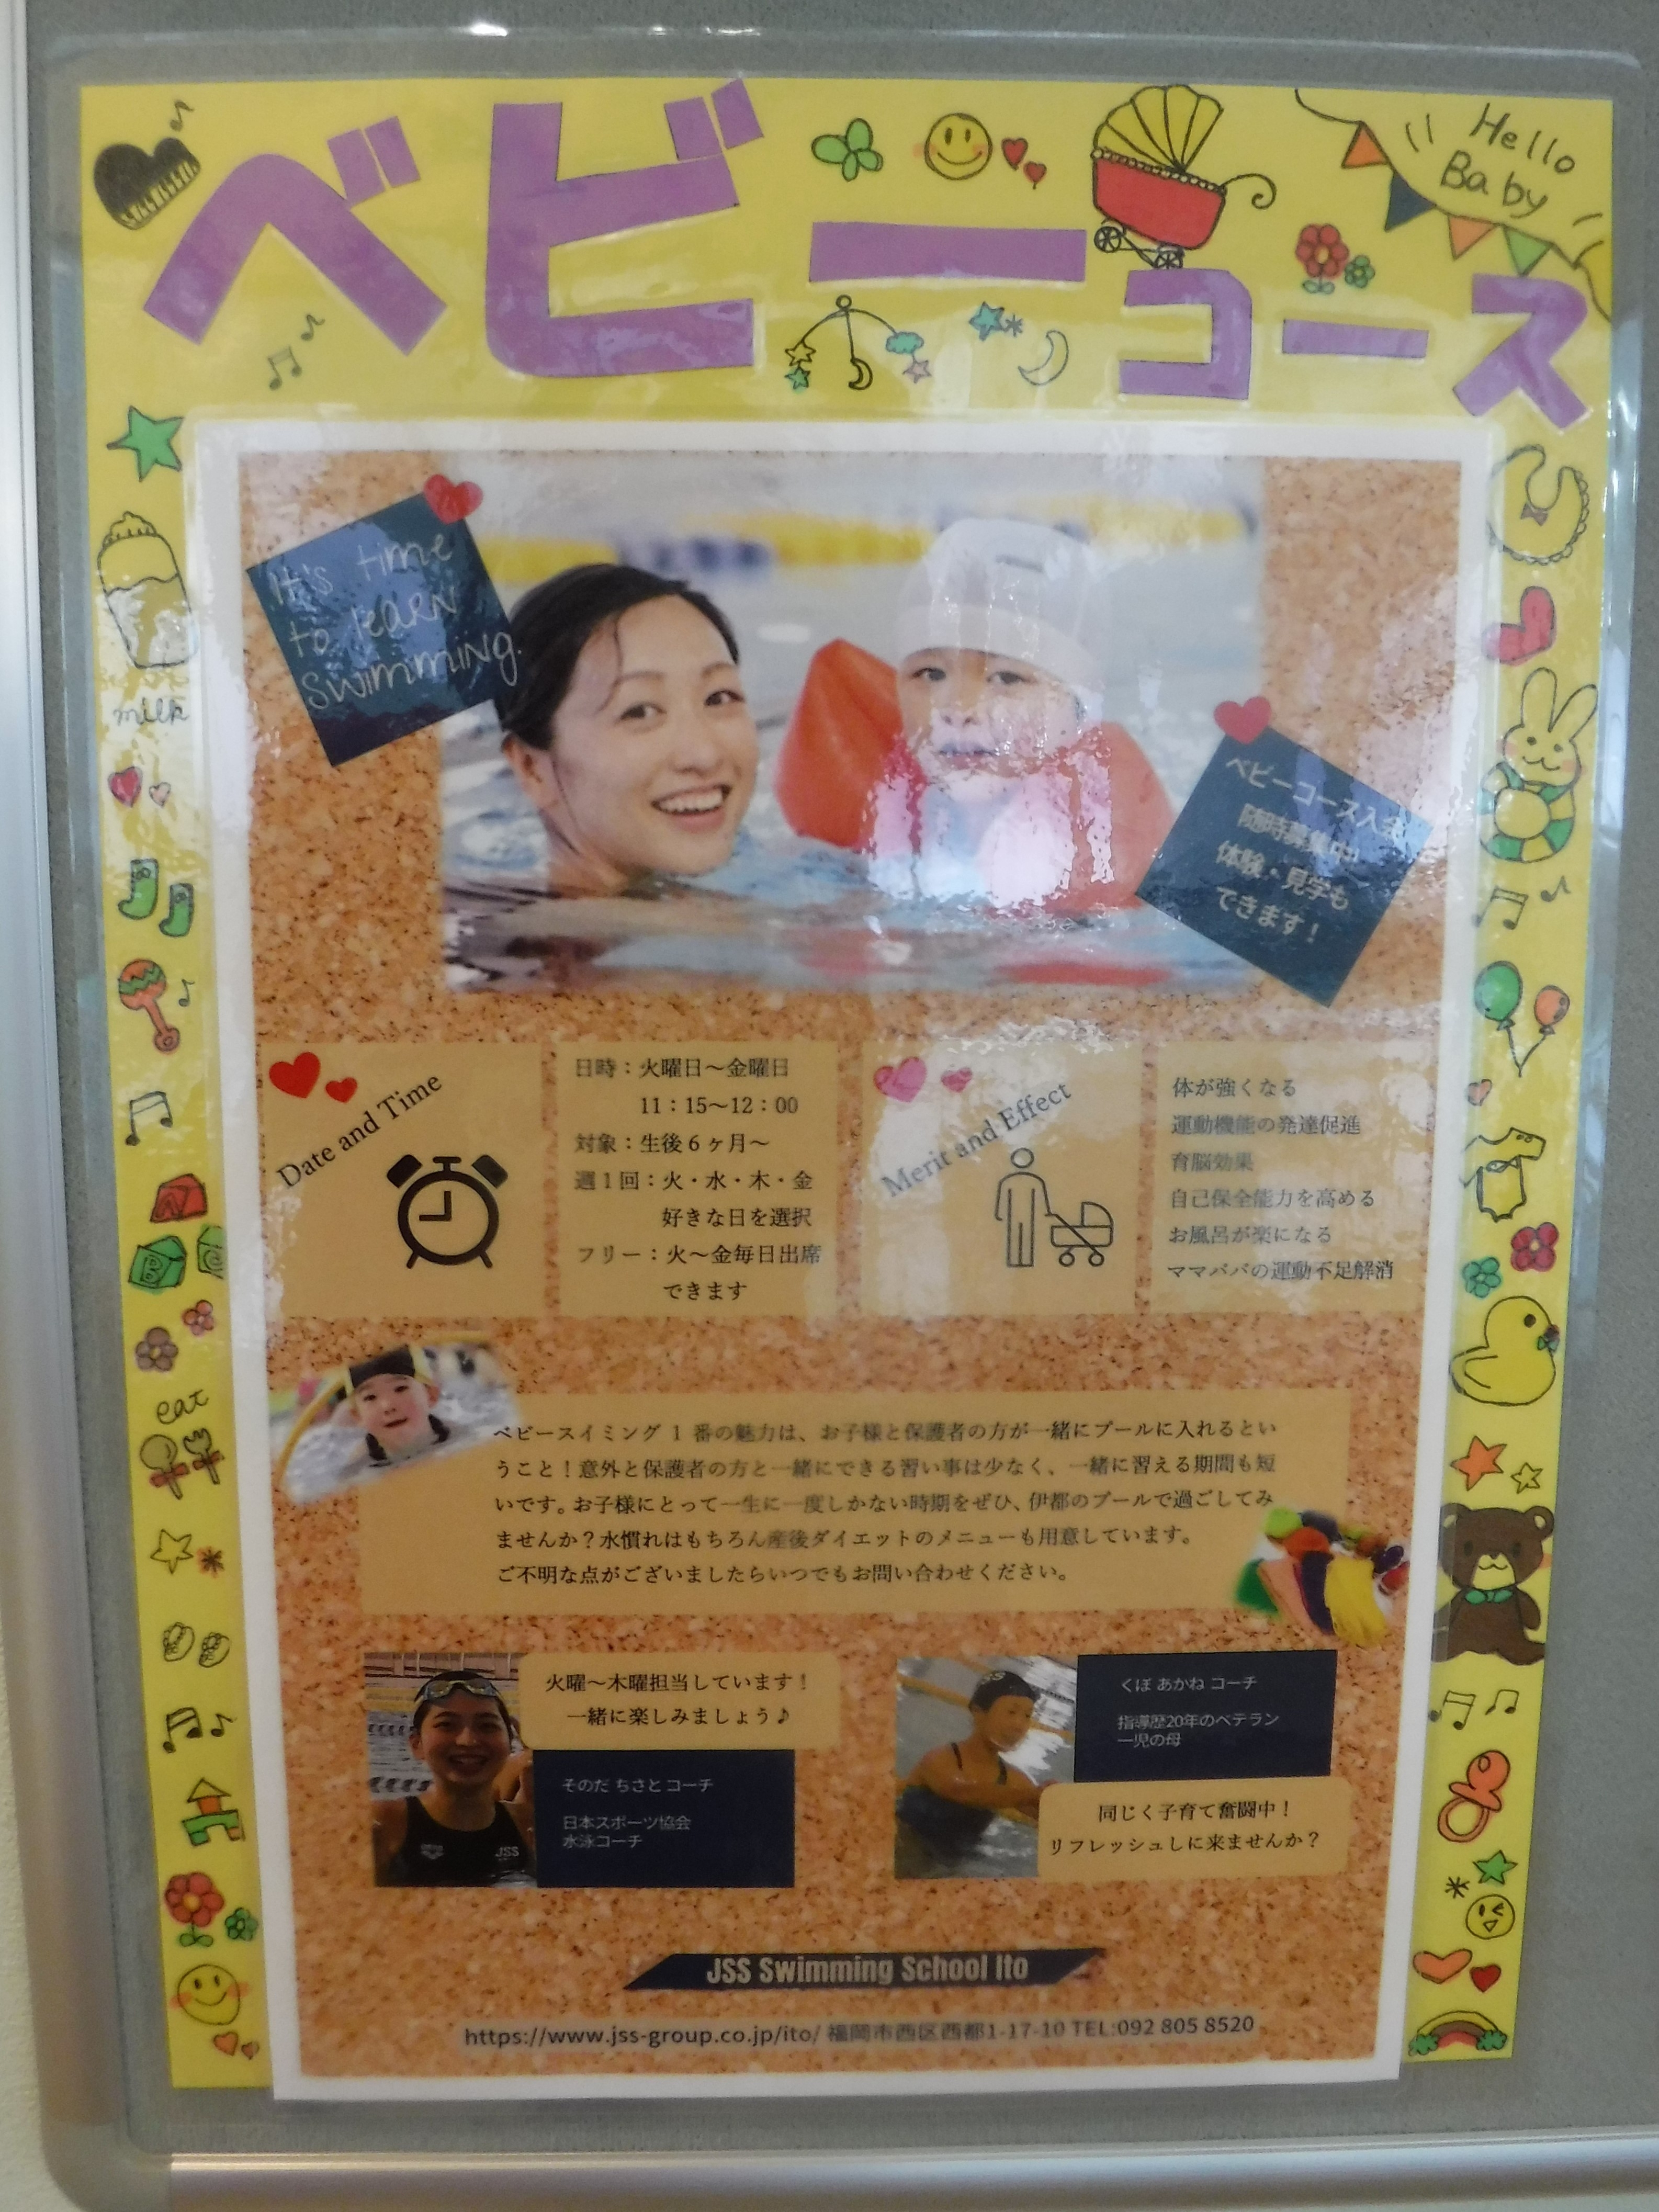 ベビーコース
Hello
Baby
It's time
to learn
swimming.
milk
ベビーコース入会
随時募集中!
体験・見学も
できます!
Date and Time
日時：火曜日～金曜日
11：15～12：00
対象：生後6ヶ月～
週1回：火・水・木・金
好きな日を選択
フリー：火～金毎日出席
できます
Merit and Effect
体が強くなる
運動機能の発達促進
育脳効果
自己保全能力を高める
お風呂が楽になる
ママパパの運動不足解消
eat
ベビースイミング 1 番の魅力は、お子様と保護者の方が一緒にプールに入れるとい
うこと！意外と保護者の方と一緒にできる習い事は少なく、一緒に習える期間も短
いです。お子様にとって一生に一度しかない時期をぜひ、伊都のプールで過ごしてみ
ませんか？水慣れはもちろん産後ダイエットのメニューも用意しています。
ご不明な点がございましたらいつでもお問い合わせください。
火曜～木曜担当しています！
一緒に楽しみましょう♪
そのだ ちさと コーチ
日本スポーツ協会
水泳コーチ
JSS
くぼ あかね コーチ
指導歴20年のベテラン
一児の母
同じく子育て奮闘中！
リフレッシュしに来ませんか？
JSS Swimming School Ito
https://www.jss-group.co.jp/ito/ 福岡市西区西都1-17-10 TEL:092 805 8520